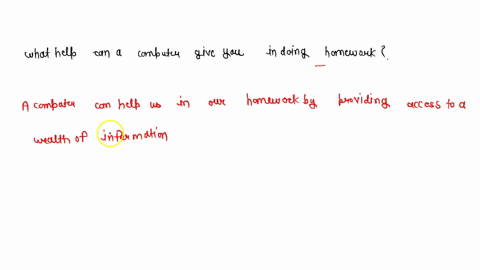 what help can a computer give you in doing homework?
A computer can help us in our homework by providing access to a
wealth of information